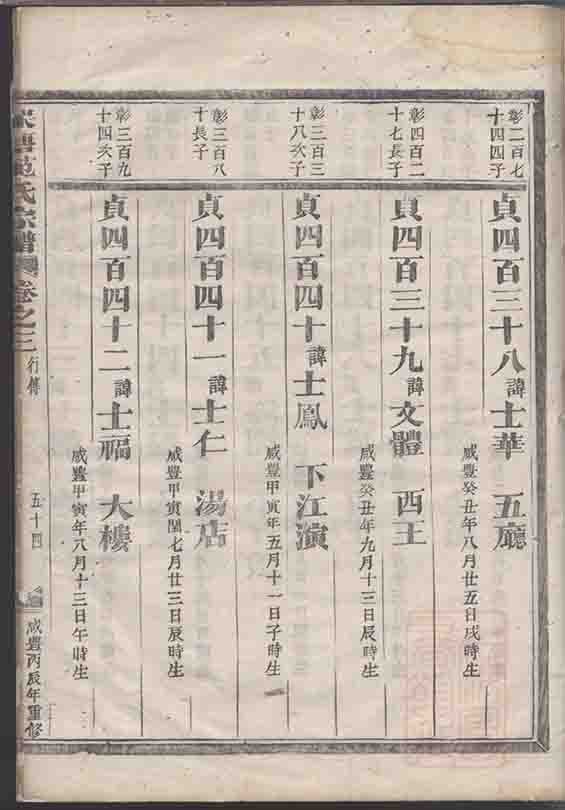 彰二百七
十四四子
貞四百三十八諱士華　五廳
咸豐癸丑年八月廿五日戌時生
彰四百二
十七長子
貞四百三十九諱文體　西王
咸豐癸丑年九月十三日辰時生
彰三百三
十八次子
貞四百四十諱士鳳　下江演
咸豐甲寅年五月十一日子時生
彰三百八
十長子
貞四百四十一諱士仁　湯店
咸豐甲寅閏七月廿三日辰時生
彰三百九
十四次子
貞四百四十二諱士福　大樓
咸豐甲寅年八月十三日午時生
范氏宗譜　卷之三　行傳　五十四　咸豐丙辰年重修